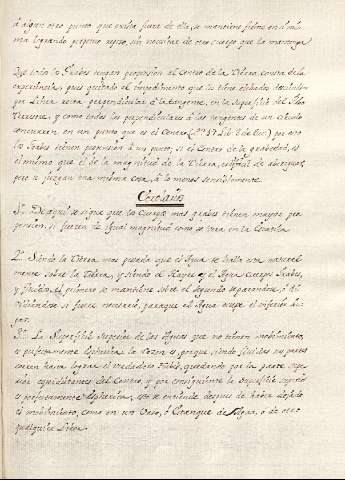 á algun otro punto que exista fuera de ella, se mantiene firme en si mis
ma logrando perpetuo reposo, sin necesitar de otro cuerpo que la mantenga
Que todos los Grabes tengan propension al Centro de la Tierra consta de la
experiencia, pues quitado el impedimento que los tiene elebados
por Linea recta perpendicular á la tangente, en la superficie del Globo
Terrestre, y como todas las perpendiculares á las tangentes de un circulo
concurren en un punto que es el Centro 17 Lib. 3 de Euc.) por esso
los Grabes tienen propension á un punto, si el Centro de la grabedad, es
el mismo que el de la magnitud de la Tierra,
que se juzgan una misma cosa, á lo menos sensiblemente.
Corolarios
1º De aqui se sigue que los Cuerpos mas grabes tienen mayor pro
pension, si fueren de igual magnitud como se vera en la Estatica.
2º Siendo la Tierra mas pesada que el Agua se halla esta natural
mente sobre la Tierra, y siendo el Ayre y el Agua cuerpos Grabes,
y fluidos, el primero se mantiene sobre el segundo separandose, ó di
vidiendose si fuere necesario, para que el Agua ocupe el inferior lu
gar.
3º La Superficie Superior de las Aguas que no tienen mobimiento,
es perfectamente Espherica la razon es, porque siendo fluidas sus partes
corren hasta lograr el verdadero Nibel, quedando por la parte supe
rior equidistantes del Centro, y por consiguiente la superficie superior
es perfectamente espherica, esto se entiende despues de haber dejado
el mobimiento, como en un Vaso, ó Estanque de Agua, ó de otro
qualquier Licor.